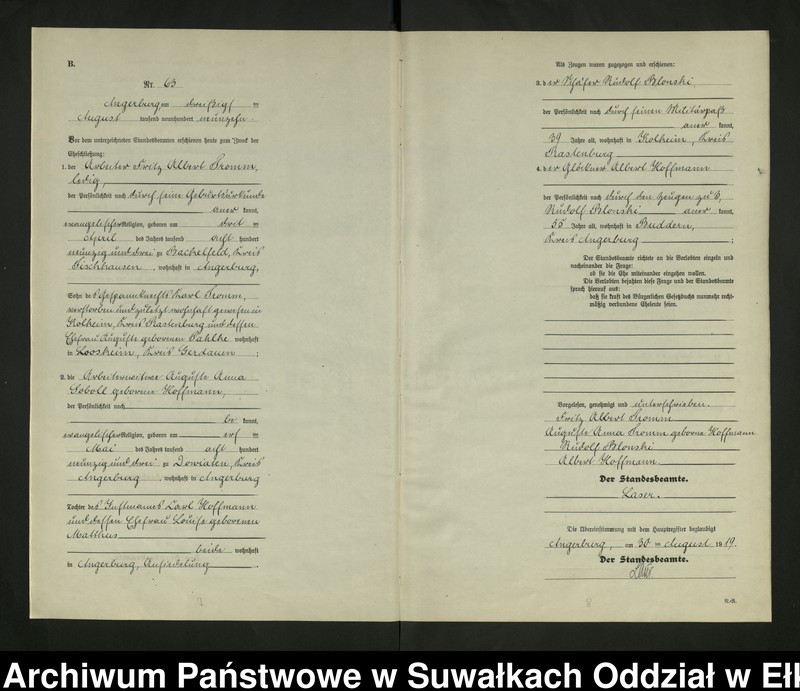 B.
Nr. 63
Angerburg am dreißigsten
August tausend neunhundert neunzehn
Vor dem unterzeichneten Standesbeamten erschienen heute zum Zweck der
Eheschließung:
1. der Arbeiter Fritz Albert Fromm,
ledig,
der Persönlichkeit nach durch seine Geburtsurkunde
aner kannt,
evangelischer Religion, geboren am
April des Jahres tausend acht hundert
neunzig und drei zu Bachelfeld, Kreis
Fischhausen, wohnhaft in Angerburg,
Sohn des Gespannknechts Karl Fromm,
verstorben und zuletzt wohnhaft gewesen in
Kolheim, Kreis Rastenburg und dessen
Ehefrau Auguste geborenen Pahlke wohnhaft
in Looskeim, Kreis Gerdauen ;
2. die Arbeiterwitwe Auguste Anna
Soboll geborene Hoffmann,
der Persönlichkeit nach
be kannt,
evangelischer Religion, geboren am elf ten
Mai des Jahres tausend acht hundert
neunzig und drei zu Dowiaten, Kreis
Angerburg, wohnhaft in Angerburg
Tochter des Instmanns Karl Hoffmann
und dessen Ehefrau Louise geborenen
Matthus
beide wohnhaft
in Angerburg, Ansiedelung.
7
Als Zeugen waren zugezogen und erschienen:
3. der Schäfer Rudolf Blonski,
der Persönlichkeit nach durch seinen Militärpaß
aner kannt,
39 Jahre alt, wohnhaft in Kolheim, Kreis
Rastenburg
4. der Glöckner Albert Hoffmann
der Persönlichkeit nach durch den Zeugen zu 3,
Rudolf Blonski aner kannt,
55 Jahre alt, wohnhaft in Buddern,
Kreis Angerburg ;
Der Standesbeamte richtete an die Verlobten einzeln und
nacheinander die Frage:
ob sie die Ehe miteinander eingehen wollen.
Die Verlobten bejahten diese Frage und der Standesbeamte
sprach hierauf aus:
daß sie kraft des Bürgerlichen Gesetzbuchs nunmehr recht-
mäßig verbundene Eheleute seien.
Vorgelesen, genehmigt und unterschrieben.
Fritz Albert Fromm
Auguste Anna Fromm geborne Hoffmann
Rudolf Blonski
Albert Hoffmann
Der Standesbeamte.
Laser.
Die Übereinstimmung mit dem Hauptregister beglaubigt
Angerburg, am 30 ten August 1919.
Der Standesbeamte.
8
Archiwum Państwowe w Suwałkach Oddział w Eł